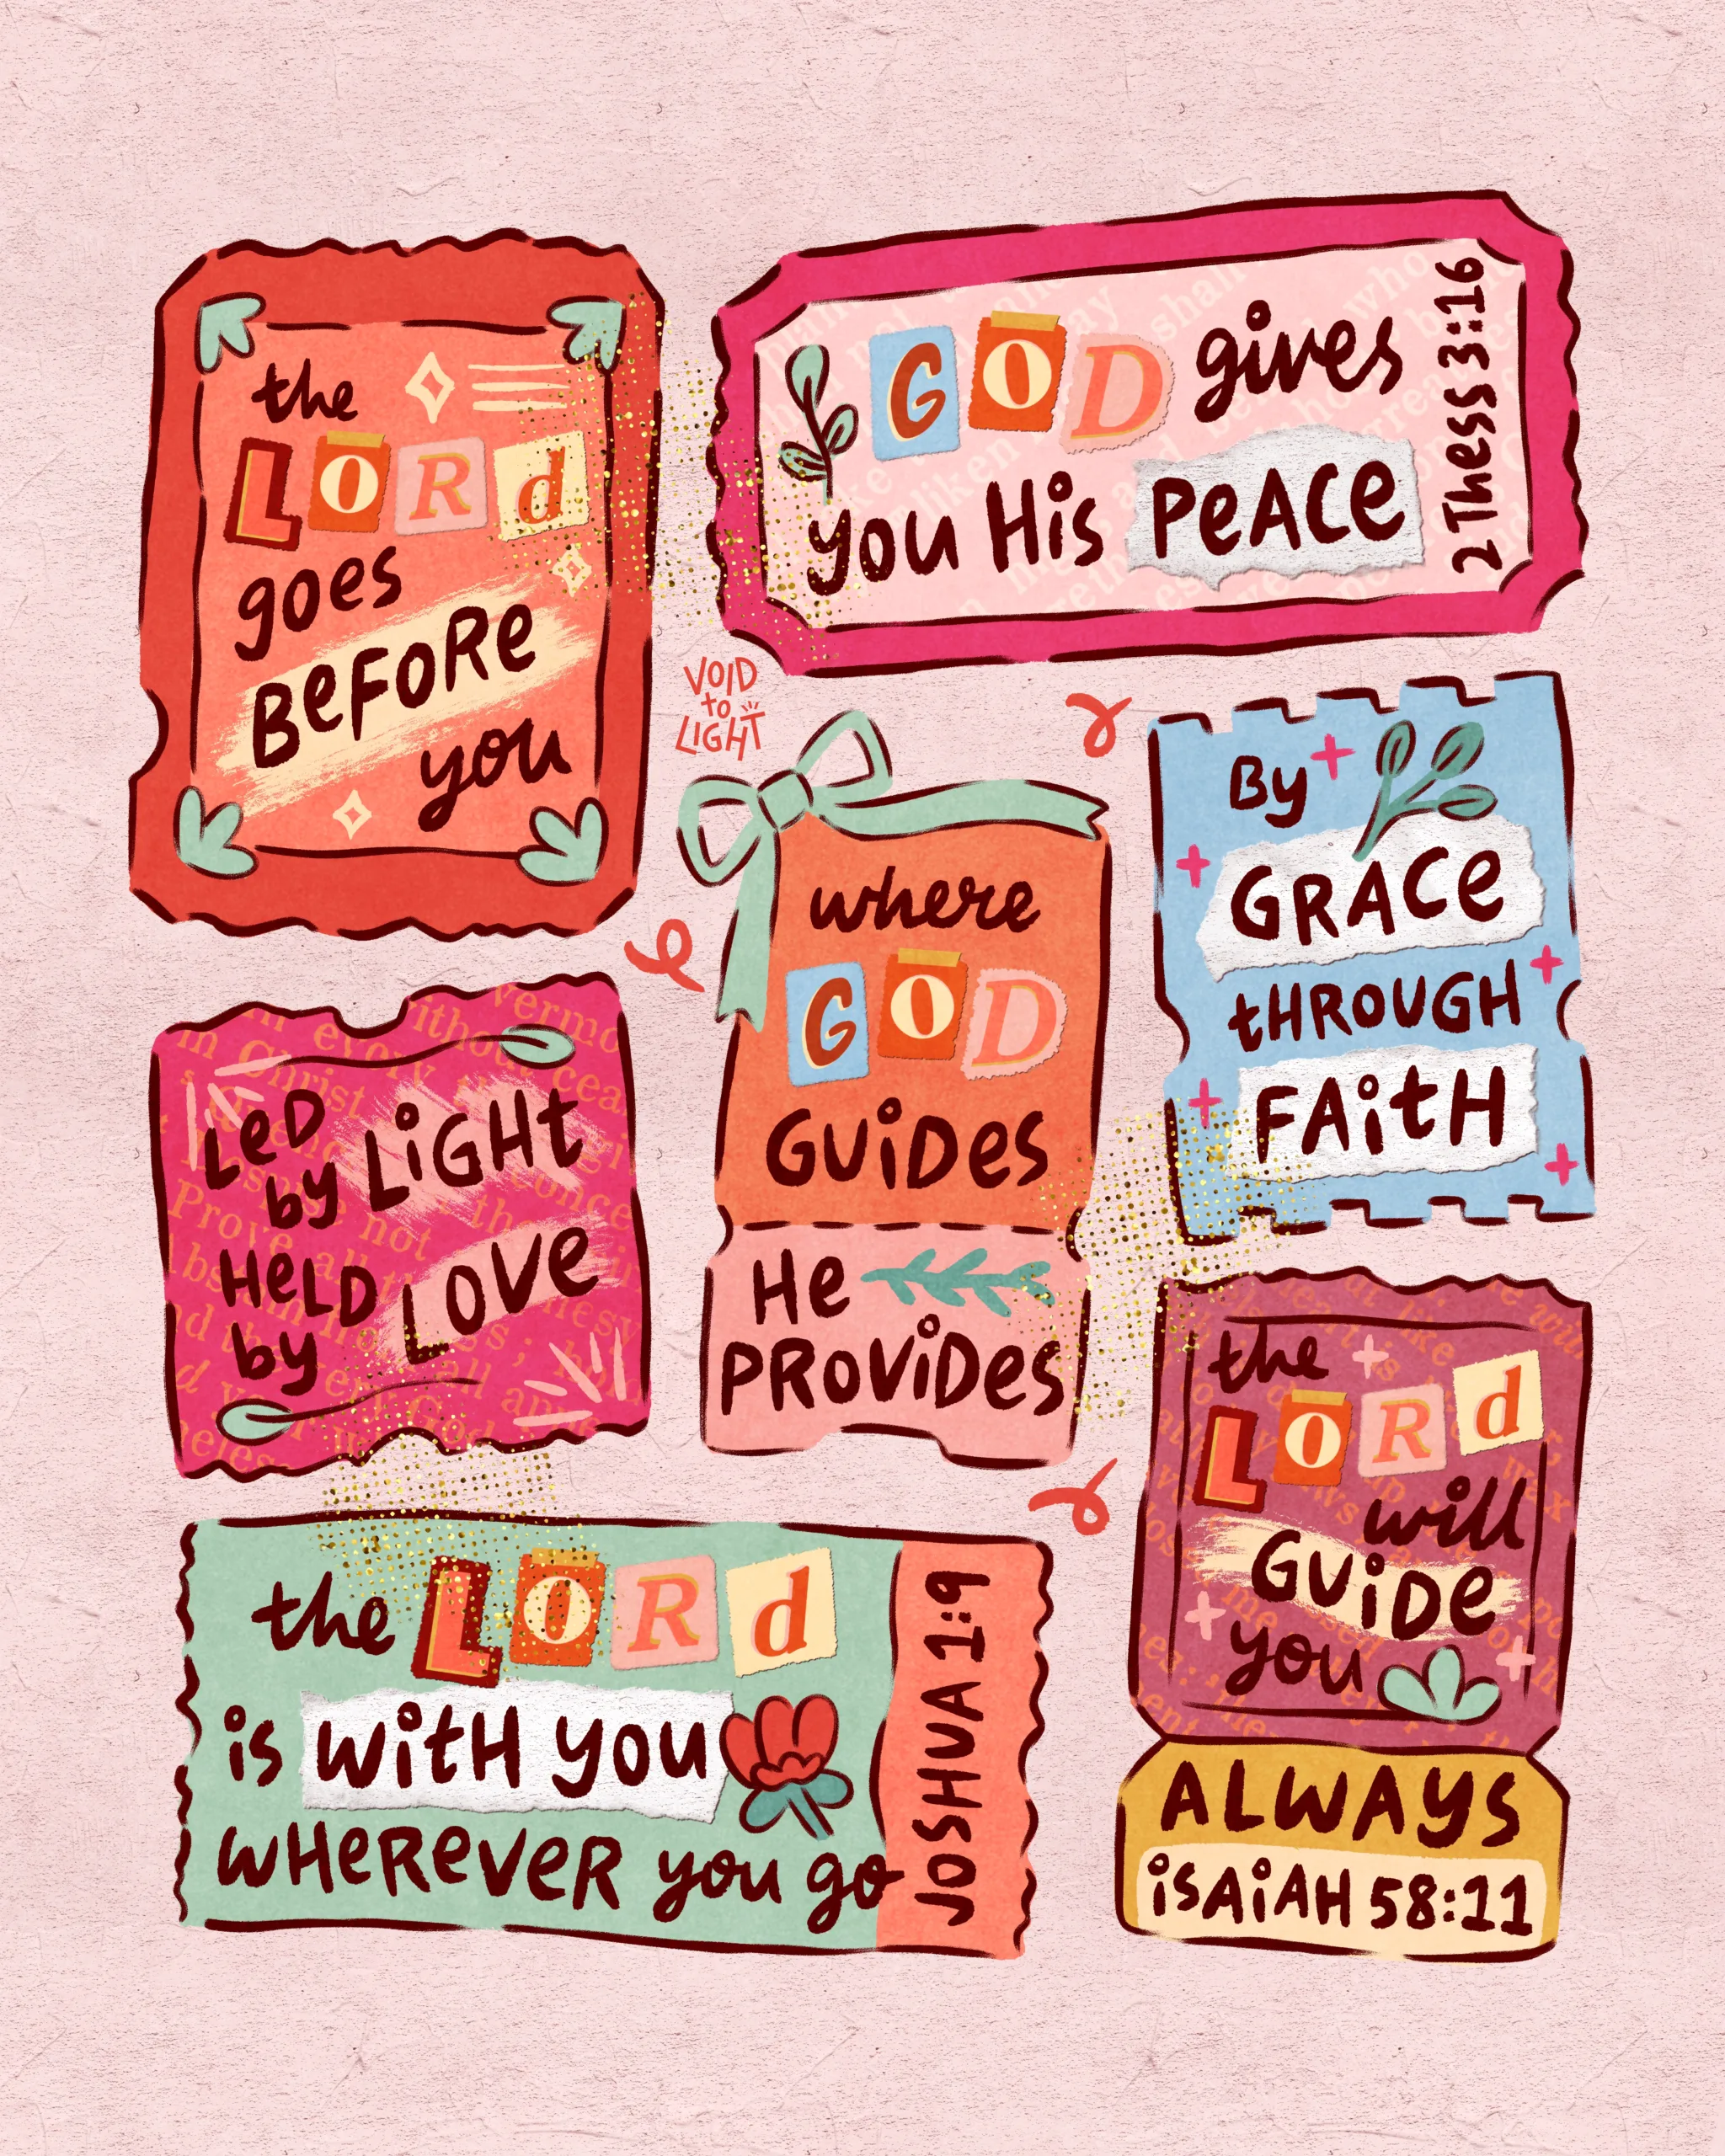 the
LORd
goes
BeFoRe
you
GOD gives
you His PeACe
2 Thess 3:16
VOID
to
LIGHT
where
GOD
GUiDes
He
PROViDes
By
GRACe
tHROUGH
FAitH
LeD
by LiGHt
HeLD
by LOVe
the LORd
is WitH you
WHeReVeR you go
JOSHUA 1:9
the
LORd
will
GUiDe
you
ALWAYS
iSAiAH 58:11